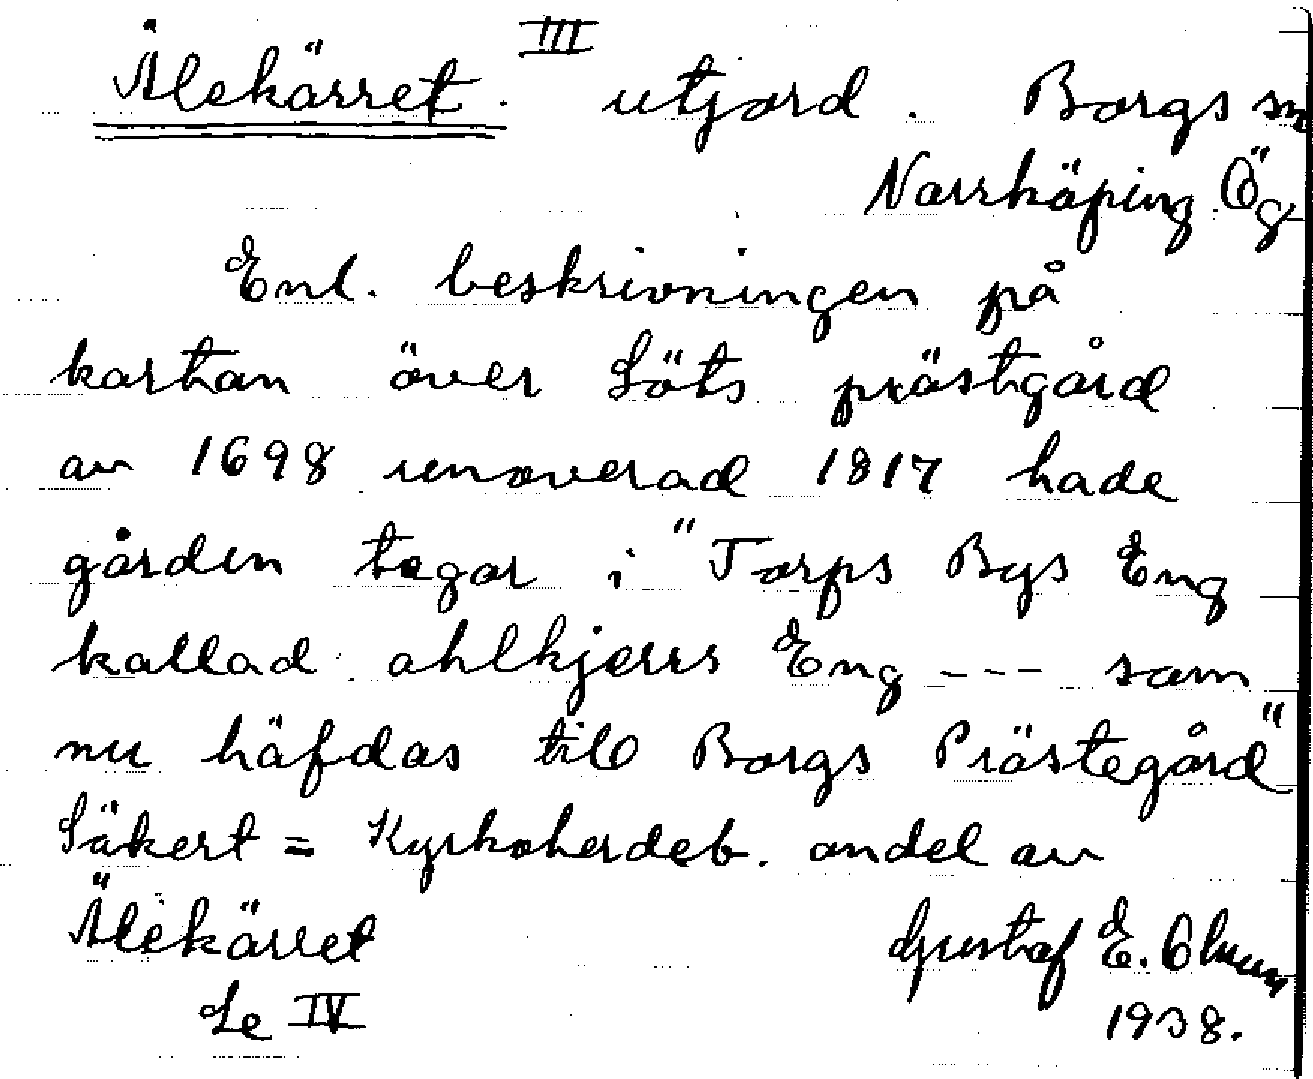 Ålekärret. III utjord. Borgs sn
Norrköping Ög
Enl. beskrivningen på
kartan över Löts prästgård
av 1698 renoverad 1817 hade
gården tegar i "Torps Bys Eng
kallad ahlkjerrs Eng --- som
nu häfdas till Borgs Prästegård"
Säkert = Kyrkoherdeb. andel av
Älekärret
Se IV
Gustaf E. Olsson
1938.